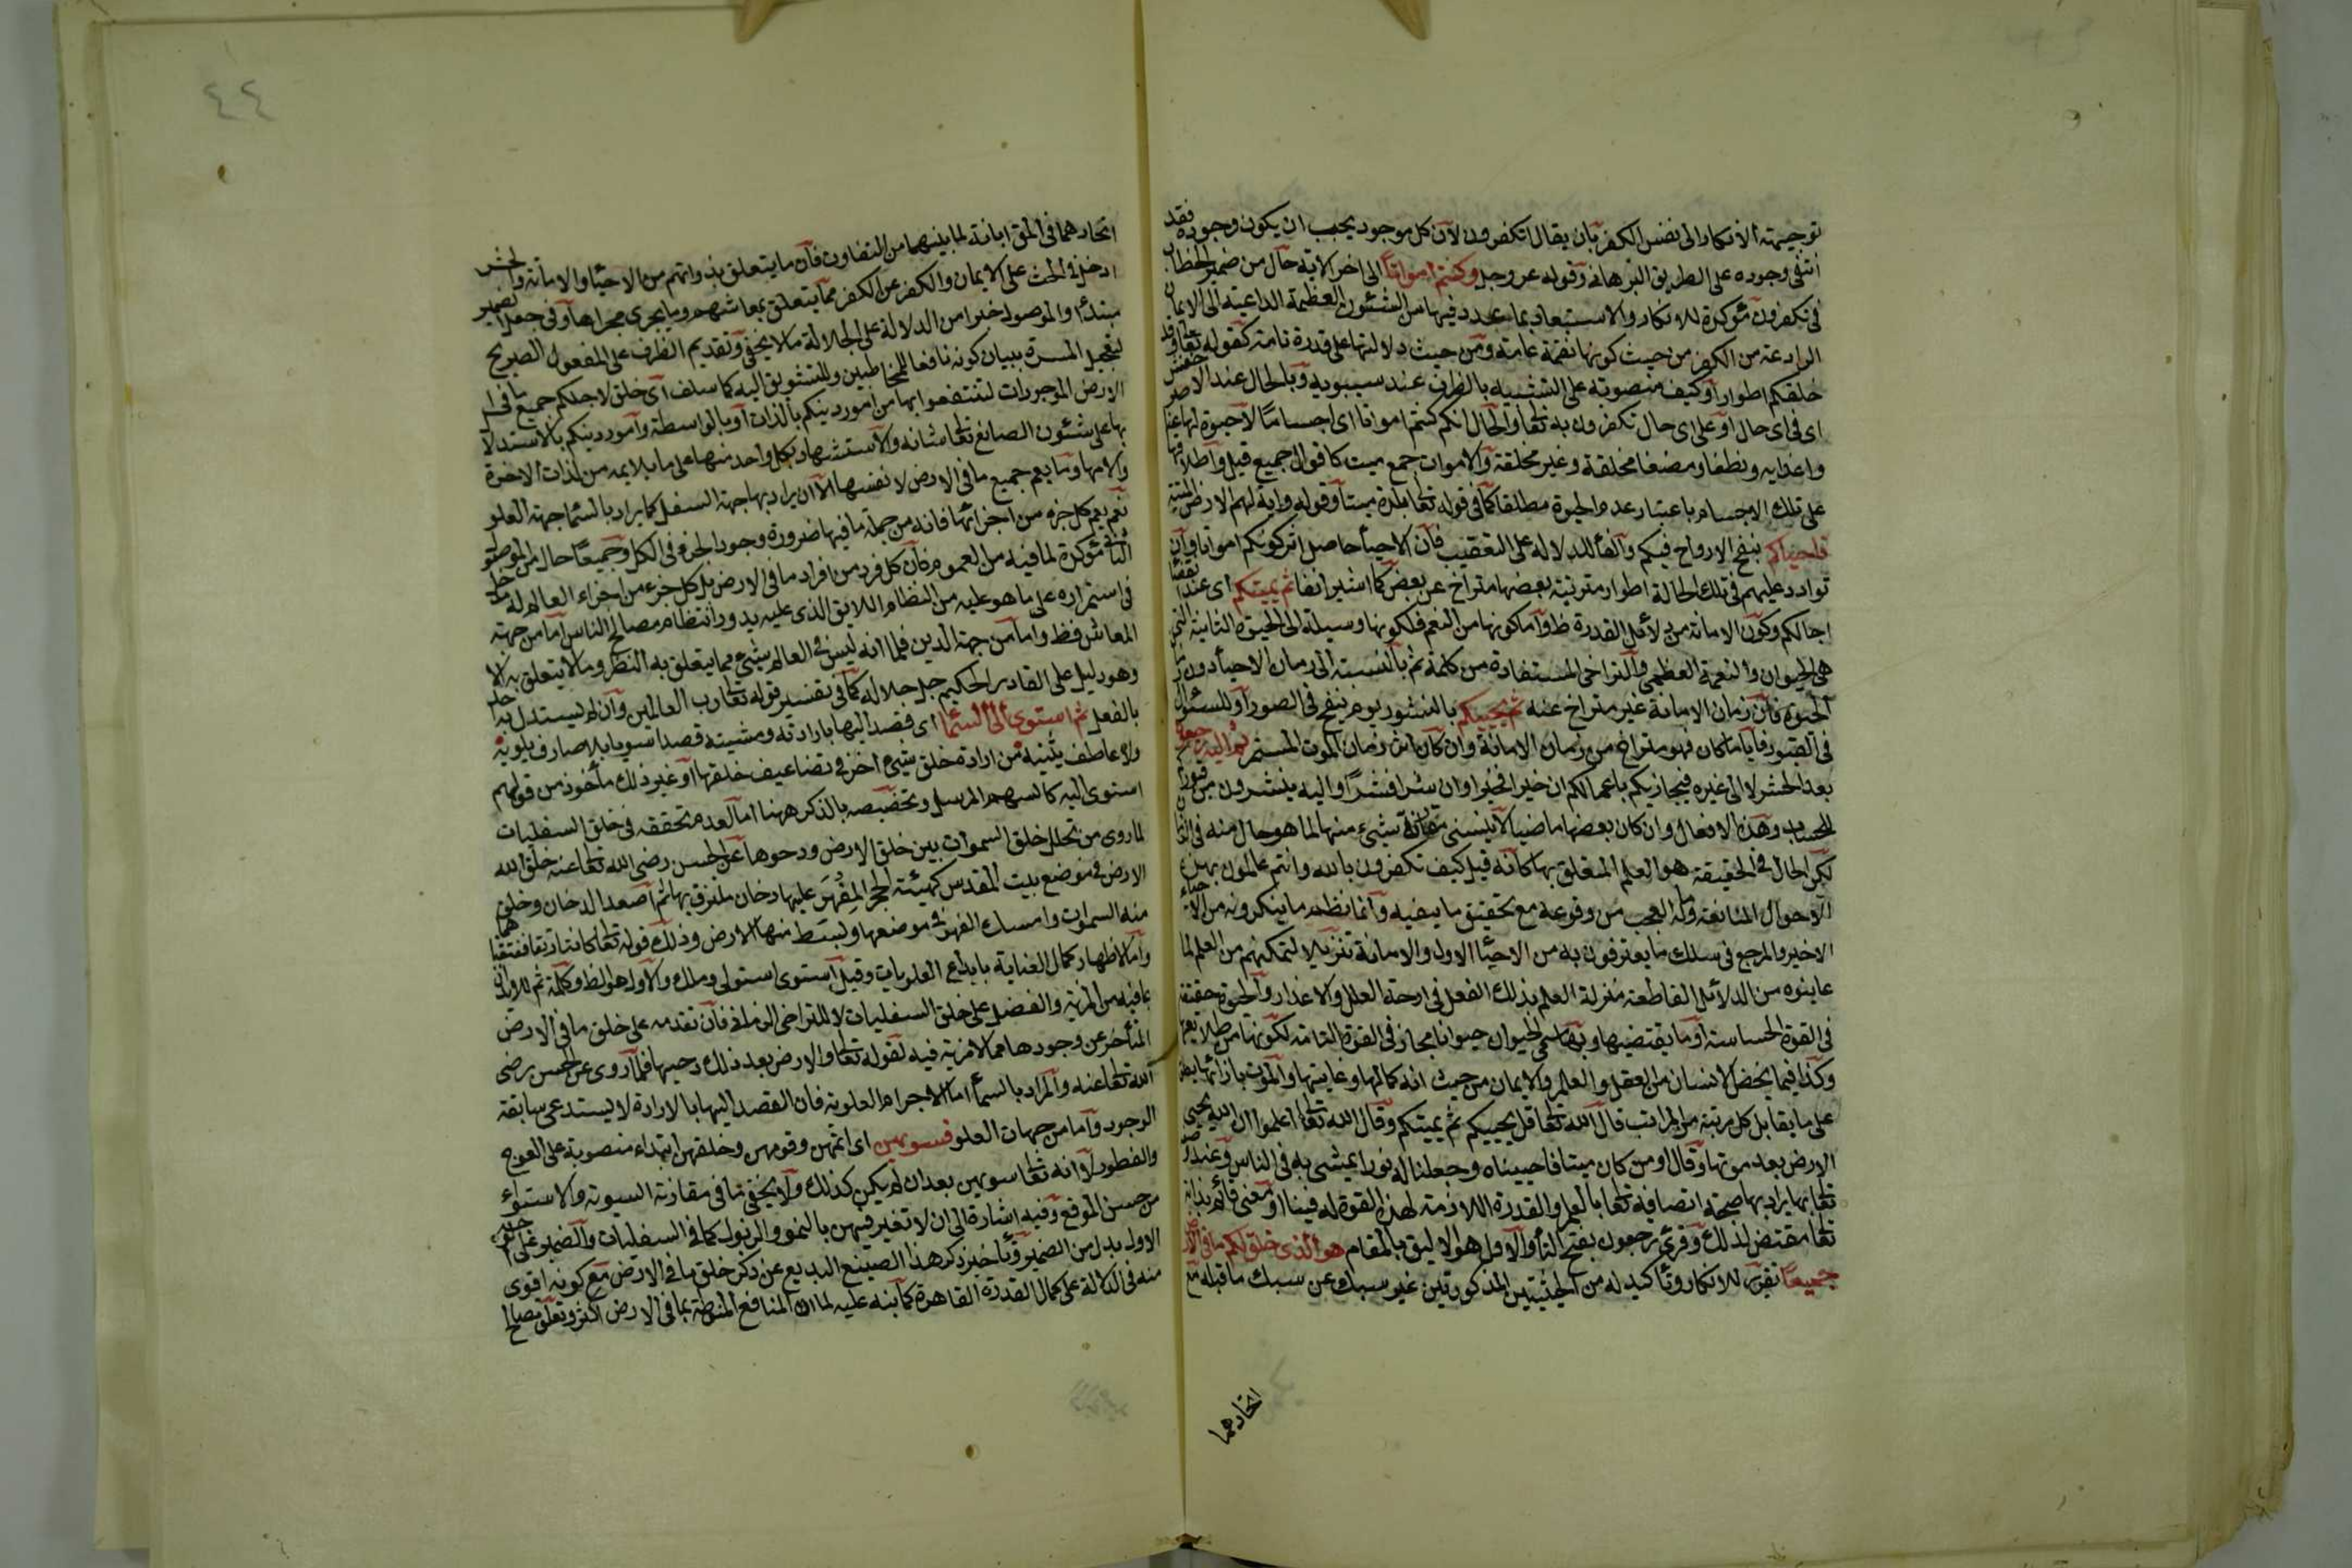 توجيهه الانكار الى نفس الكفر بان يقال اتكفرون لان كل موجود يجب ان يكون وجوده فقد
انتفى وجوده على الطريق البرهانى وقوله عز وجل وكنتم امواتا الى اخر الاية حال من ضمير الخطاب
فى تكفرون مؤكدة للانكار والاستبعاد بما عدد فيها من الشئون العظيمة الداعية الى الايمان
الرادعة من الكفر من حيث كونها نعمة عامة ومن حيث دلالتها على قدرة تامة كقوله تعا وقد
خلقكم اطوارا وكيف منصوبة على التشبيه بالظرف عند سيبويه وبالحال عند الاخفش
اى فى اى حال او على اى حال تكفرون به تعا والحال انكم كنتم امواتا اى اجساما لا حيوة لها عنا
واغذية ونطفا ومضغا مخلقة وغير مخلقة والاموات جمع ميت كاقوال جميع قيل واطلاقها
على تلك الاجسام باعتبار عدم الحيوة مطلقا كما فى قوله تعا بلدة ميتا وقوله واية لهم الارض الميتة
فاحياكم بنفخ الارواح فيكم والفاء للدلالة على التعقيب فان الاحياء حاصل اثر كونكم امواتا وان
توارد عليهم فى تلك الحالة اطوار مترتبة بعضها متراخ عن بعض كما اشير انفا ثم يميتكم اى عند انقضا
اجالكم وكون الاماتة من دلائل القدرة ظ واما كونها من النعم فلكونها وسيلة الى الحيوة الثانية التى
هى الحيوان والنعمة العظمى والتراخى المستفادة من كلمة ثم بالنسبة الى زمان الاحياء دون زما
الحيوة فان زمان الاماتة غير متراخ عنه ثم يحييكم بالنشور يوم ينفخ فى الصور او للسئوال
فى القبور فاياما كان فهو متراخ من زمان الاماتة وان كان اثر زمان الموت المستمر ثم اليه ترجعون
بعد الحشر لا الى غيره فيجازيكم باعمالكم ان خيرا فخيرا وان شرا فشرا واليه ينشرون من قبورهم
للحساب وهذه الافعال وان كان بعضها ماضيا لا يتسنى مقارنة شىء منها لما هو حال منه فى الزمان
لكن الحال فى الحقيقة هو العلم المتعلق بها كانه قيل كيف تكفرون بالله وانتم عالمون بهذه
الاحوال المانعة ومآله العجب من وقوعه مع تحقيق ما ينفيه وانما نظم ما ينكرونه من الاحياء
الاخير والمرجع فى سلك ما يعترفون به من الاحياء الاول والاماتة تنزيلا لتمكنهم من العلم لما
عاينوه من الدلائل القاطعة منزلة العلم بذلك الفعل فى ازحة العلل والاعذار والحيوة حقيقة
فى القوة الحساسة او ما يقتضيها وبها سمى الحيوان حيوانا مجاز فى القوة النامية لكونها من طلايعها
وكذا فيما يخص الانسان من العقل والعلم والايمان من حيث انه كمالها وغايتها والموت بازائها يطلق
على ما يقابل كل مرتبة من المراتب قال الله تعا قل يحييكم ثم يميتكم وقال الله تعا اعلموا ان الله يحيى
الارض بعد موتها وقال او من كان ميتا فاحييناه وجعلنا له نورا يمشى به فى الناس وعند
تعا بها يراد بها صحة اتصافه تعا بالعلم والقدرة اللازمة لهذه القوة له فينا او معنى قائم بذاته
تعا مقتض لذلك وقرئ ترجعون بفتح التاء والاول هو الاليق بالمقام هو الذى خلق لكم ما فى الارض
جميعا تقرير للانكار وتأكيد له من الحيثيتين المذكورتين غير سبك عن سبك ما قبله مع
اتحادهما
٤٤
اتحادهما فى المق ابانة لما بينهما من التفاوت فان ما يتعلق بذواتهم من الاحياء والاماتة والحشر
ادخل فى الحث على الايمان والكفر عن الكفر مما يتعلق بمعاشهم وما يجرى مجراها وفى جعل الضمير
مبتدأ والموصول خبرا من الدلالة على الجلالة ما لا يخفى وتقديم الظرف على المفعول الصريح
لتعجيل المسرة ببيان كونه نافعا للمخاطبين وللتشويق اليه كما سلف اى خلق لاجلكم جميع ما فى
الارض الموجودات لتنتفعوا بها من امور دينكم بالذات او بالواسطة وامور دينكم بالاستدلال
بها على شئون الصانع تعا شانه والاستشهاد بكل واحد منها على ما يلايمه من لذات الاخرة
والامها وما يعم جميع ما فى الارض لا نفسها الا ان يراد بها جهة السفل كما يراد بالسما جهة العلو
نعم يعم كل جزء من اجزائها فانه من جملة ما فيها ضرورة وجود الجزء فى الكل وجميعا حال من الموصول
الثانى مؤكدة لما فيه من العموم فان كل فرد من افراد ما فى الارض بل كل جزء من اجزاء العالم له مدخل
فى استمراره على ما هو عليه من النظام اللايق الذى عليه يدور انتظام مصالح الناس اما من جهة
المعاش فظ واما من جهة الدين فلما انه ليس فى العالم شىء مما يتعلق به النظر وما لا يتعلق به الا
وهو دليل على القادر الحكيم جل جلاله كما فى تفسير قوله تعا رب العالمين وان لم يستدل به احد
بالفعل ثم استوى الى السما اى قصد اليها بارادته ومشيته قصدا سويا بلا صارف يلويه
ولا عاطف يثنيه من ارادة خلق شىء اخر فى تضاعيف خلقها او غير ذلك مأخوذ من قولهم
استوى اليه كالسهم المرسل وتخصيصه بالذكر ههنا اما لعدم تحققه فى خلق السفليات
لما روى من تخلل خلق السموات بين خلق الارض ودحوها عن الحسن رضى الله تعا عنه خلق الله
الارض فى موضع بيت المقدس كهيئة الحجر المفهر عليها دخان ملتزق بها ثم اصعد الدخان وخلق
منه السموات وامسك الفهر فى موضعها وبسط منها الارض وذلك قوله تعا كانتا رتقا ففتقناهما
واما لاظهار كمال العناية بابداع العلويات وقيل استوى استولى وملك والاول هو الظ وكلمة ثم للايذان
بما فيه من المزية والفضل على خلق السفليات لا للتراخى الزمانى فان تقدمه على خلق ما فى الارض
المتأخر عن وجودها مما لا مزية فيه لقوله تعا والارض بعد ذلك دحيها فلما روى عن الحسن رضى
الله تعا عنه والمراد بالسماء اما الاجرام العلوية فان القصد اليها بالارادة لا يستدعى سابقة
الوجود واما من جهات العلو فسويهن اى اتمهن وقومهن وخلقهن ابتداء منصوبة على العوج
والفطور لا انه تعا سويهن بعد ان لم يكن كذلك ولا يخفى ما فى مقارنة التسوية والاستواء
من حسن الموقع وفيه اشارة الى ان لا تغير فيهن بالنمو والذبول كما فى السفليات والضمير على
الاول بدل من الضمير وتأخير ذكر هذا الصنيع البديع عن ذكر خلق ما فى الارض مع كونه اقوى
منه فى الدلالة على كمال القدرة القاهرة كما نبه عليه لما ان المنافع المنوطة بما فى الارض اكثر وتعلق مصالح